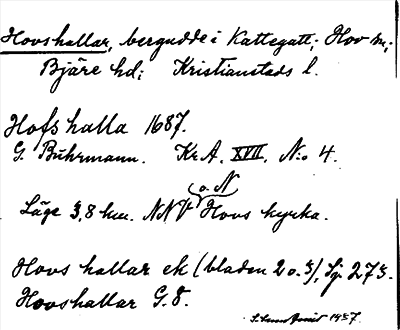 Hovshallar, bergudde i Kattegatt; Hov sn;
Bjäre hd; Kristianstads l.
Hofs halla 1687.
G. Buhrmann. Kr.A. XVII, N:o 4.
o. N
Läge 3,8 km. NNV Hovs kyrka.
Hovs hallar ek (bladen 2 o. 3), 273.
Hovshallar G.
1937.